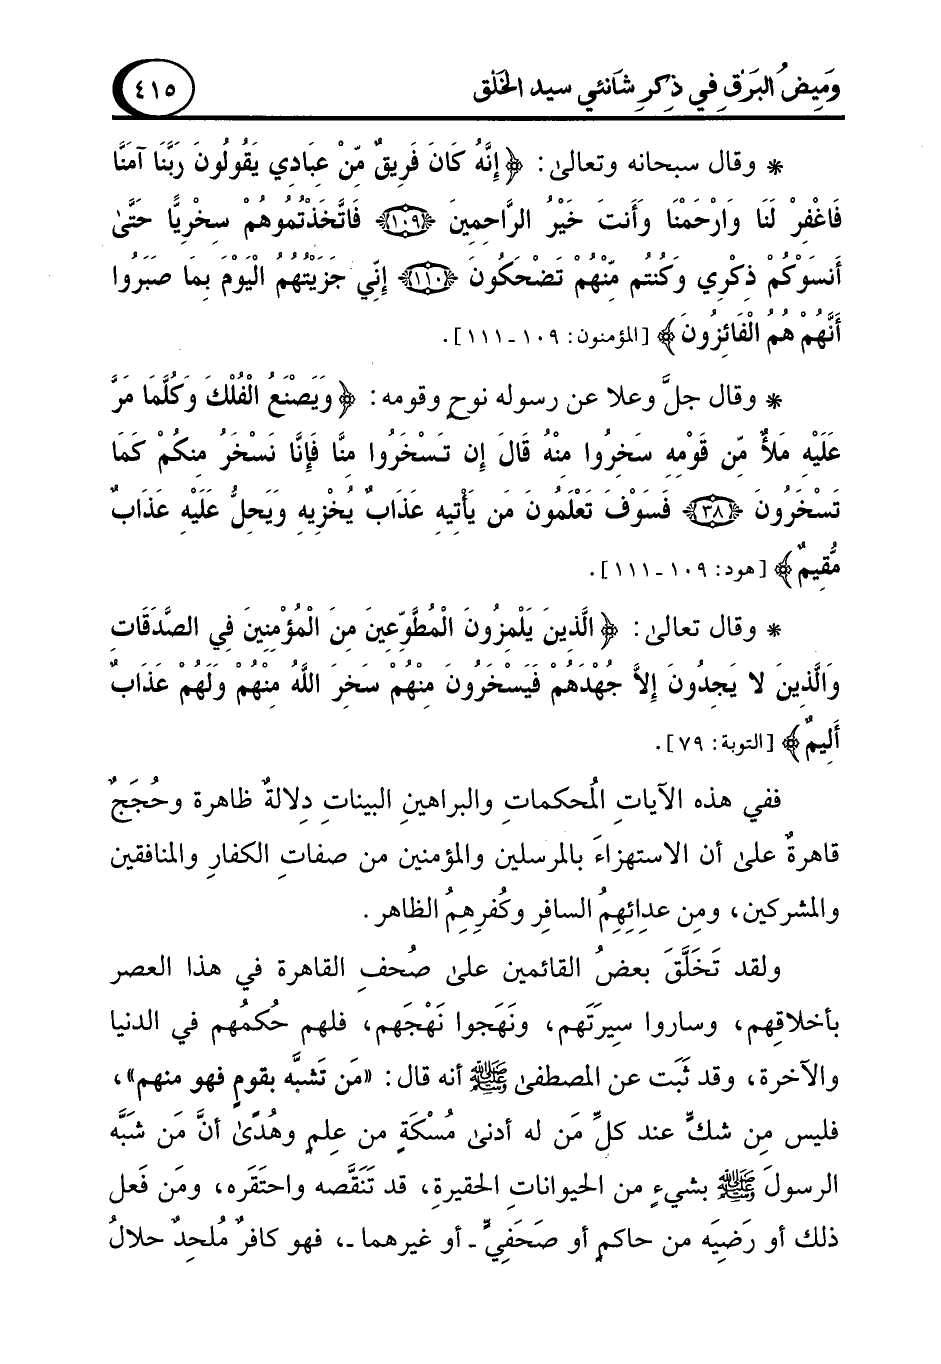 وَمِيضُ البَرْقِ في ذِكرِ شَانئي سيد الخَلْق ٤١٥
* وقال سبحانه وتعالىٰ: ﴿إِنَّهُ كَانَ فَرِيقٌ مِّنْ عِبَادِي يَقُولُونَ رَبَّنَا آمَنَّا
فَاغْفِرْ لَنَا وَارْحَمْنَا وَأَنتَ خَيْرُ الرَّاحِمِينَ ﴿١٠٩﴾ فَاتَّخَذْتُمُوهُمْ سِخْرِيًّا حَتَّىٰ
أَنسَوْكُمْ ذِكْرِي وَكُنتُم مِّنْهُمْ تَضْحَكُونَ ﴿١١٠﴾ إِنِّي جَزَيْتُهُمُ الْيَوْمَ بِمَا صَبَرُوا
أَنَّهُمْ هُمُ الْفَائِزُونَ﴾ [المؤمنون: ١٠٩ـ١١١].
* وقال جلَّ وعلا عن رسوله نوحٍ وقومه: ﴿وَيَصْنَعُ الْفُلْكَ وَكُلَّمَا مَرَّ
عَلَيْهِ مَلأٌ مِّن قَوْمِهِ سَخِرُوا مِنْهُ قَالَ إِن تَسْخَرُوا مِنَّا فَإِنَّا نَسْخَرُ مِنكُمْ كَمَا
تَسْخَرُونَ ﴿٣٨﴾ فَسَوْفَ تَعْلَمُونَ مَن يَأْتِيهِ عَذَابٌ يُخْزِيهِ وَيَحِلُّ عَلَيْهِ عَذَابٌ
مُّقِيمٌ﴾ [هود: ١٠٩ـ١١١].
* وقال تعالىٰ: ﴿الَّذِينَ يَلْمِزُونَ الْمُطَّوِّعِينَ مِنَ الْمُؤْمِنِينَ فِي الصَّدَقَاتِ
وَالَّذِينَ لا يَجِدُونَ إِلاَّ جُهْدَهُمْ فَيَسْخَرُونَ مِنْهُمْ سَخِرَ اللَّهُ مِنْهُمْ وَلَهُمْ عَذَابٌ
أَلِيمٌ﴾ [التوبة: ٧٩].
ففي هذه الآياتِ المُحكماتِ والبراهينِ البيناتِ دِلالةٌ ظاهرة وحُجَجٌ
قاهرةٌ علىٰ أن الاستهزاءَ بالمرسلين والمؤمنين من صفاتِ الكفارِ والمنافقين
والمشركين، ومِن عدائِهِمُ السافرِ وكُفرِهِمُ الظاهر.
ولقد تَخَلَّقَ بعضُ القائمين علىٰ صُحفِ القاهرة في هذا العصر
بأخلاقِهم، وساروا سيرَتَهم، ونَهَجوا نَهْجَهم، فلهم حُكمُهم في الدنيا
والآخرة، وقد ثَبَت عن المصطفىٰ ﷺ أنه قال: «مَن تشبَّه بقومٍ فهو منهم»،
فليس مِن شكٍّ عند كلِّ مَن له أدنىٰ مُسْكَةٍ من علمٍ وهُدًىٰ أنَّ مَن شبَّه
الرسولَ ﷺ بشيءٍ من الحيواناتِ الحقيرة، قد تَنَقَّصه واحتَقَره، ومَن فَعل
ذلك أو رَضِيَه من حاكمٍ أو صَحَفِيٍّ ـ أو غيرهما ـ، فهو كافرٌ مُلحِدٌ حلالُ